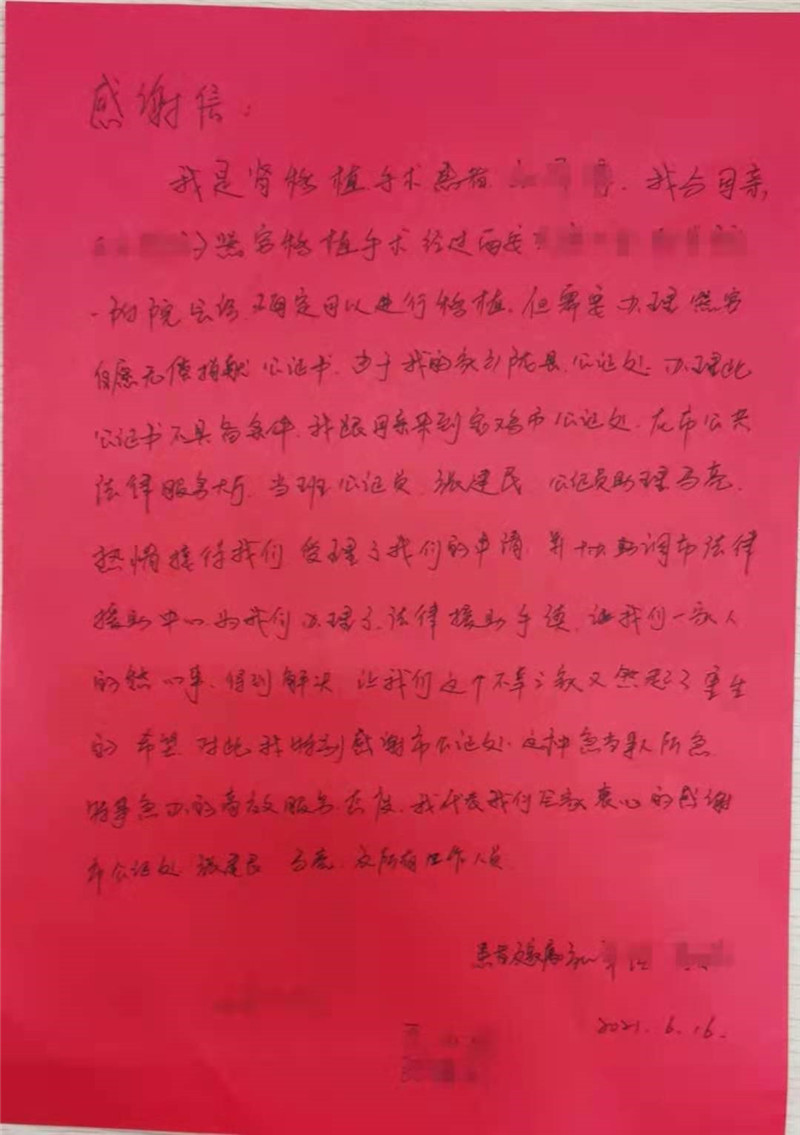 感谢信：
我是肾移植手术患者 我与母亲
肾移植手术经过西安
一附院会诊 确定可以进行移植，但需要办理
自愿无偿捐献公证书，由于我的家乡陇县公证处办理此
公证书不具备条件，我跟母亲来到宝鸡市公证处，在市公共
法律服务大厅，当班公证员 张建民 公证员助理马亮，
热情接待我们 受理了我们的申请，并协调市法律
援助中心为我们办理了法律援助手续，让我们一家人
的愁心事，得到解决，让我们这个不幸之家又燃起了重生
的希望 对此我特别感谢市公证处 这种急当事人所急
特事急办的高效服务态度，我代表我们全家衷心的感谢
市公证处 张建民 马亮，及所有工作人员
患者及家属
2021.6.16.